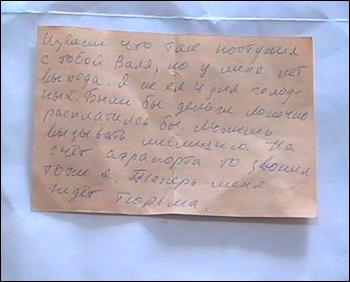 Извени что так поступил
с тобой Валя, но у меня нет
выхода. Я не ел 4 дня голод-
ный. Были бы деньги конечно
расплатился бы. Можешь
вызывать милицию. На
счёт аэрапорта то звонил
тоже я. Теперь меня
ждёт тюрьма.